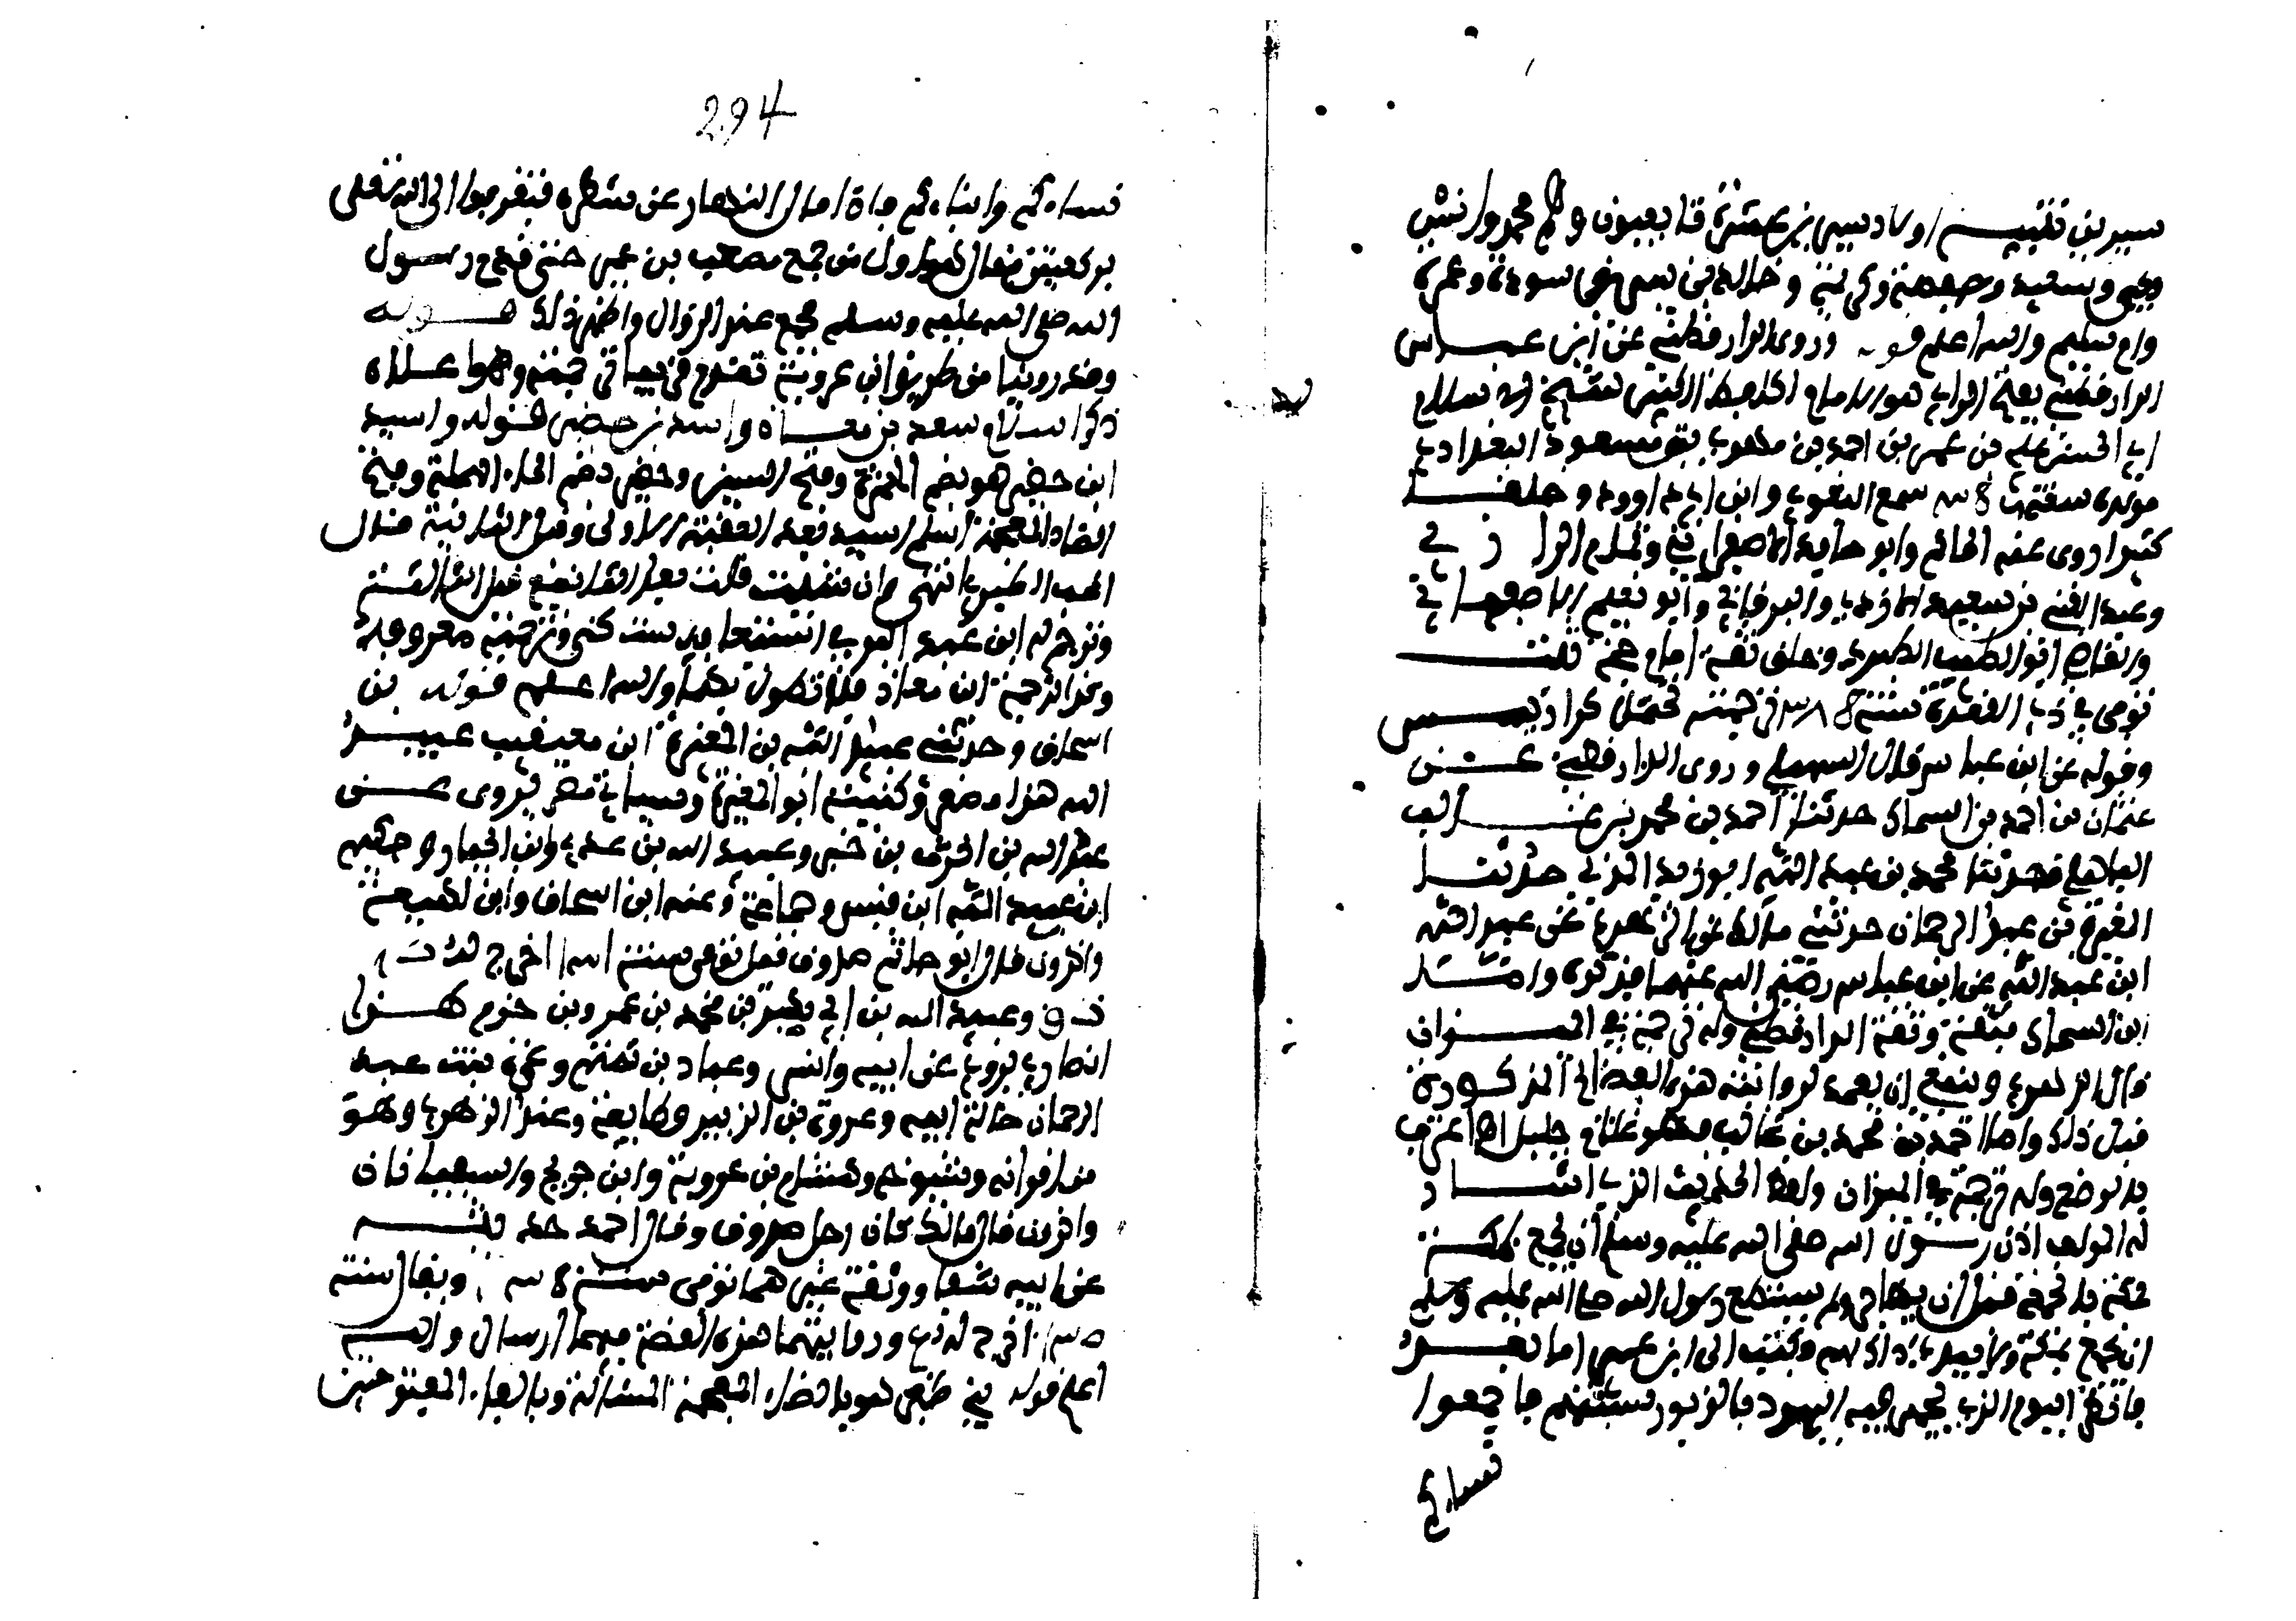 سيرين تنبيه اولاد سيرين عشرة تابعيون وهم محمد وانس
ويحيى وسعيد وحفصة وكريمة وخالد بن سيرين سودة وعمرة
وام سليم والله اعلم قوله وروى الدارقطني عن ابن عباس
الدارقطني بفتح الراء هو الامام الحافظ الكبير شيخ الاسلام
ابي الحسن علي بن عمر بن احمد بن مهدي بن مسعود البغدادي
مولده سنة سمع البغوي وابن ابي داوود وخلقا
كثيرا روى عنه الحاكم وابو حامد الاسفرايني وتمام الرازي
وعبد الغني بن سعيد الازدي والبرقاني وابو نعيم الاصبهاني
والقاضي ابو الطيب الطبري وخلق ثقة امام حجة قلت
توفي في ذي القعدة سنة ترجمته تحتمل كراريس
وقوله عن ابن عباس قال السهيلي وروى الدارقطني عن
عثمان بن احمد بن السماك حدثنا احمد بن محمد بن غالب
الباهلي حدثنا محمد بن عبد الله ابو زيد المدني حدثنا
المغيرة بن عبد الرحمان حدثني مالك عن الزهري عن عبيد الله
ابن عبد الله عن ابن عباس رضي الله عنهما فذكره واحمد
ابن السماك ثقة وثقه الدارقطني وله ترجمة في الميزان
قال الذهبي وينبغي ان يغمز لروايته هذه الفضائح المذكورة
قبل ذلك واما احمد بن محمد بن غالب فهو غلام خليل اعترف
بالوضع وله ترجمة في الميزان ولفظ الحديث الذي اشار
له المولف اذن رسول الله صلى الله عليه وسلم ان يجمع بمكة
عنه بالجمعة قبل ان يهاجر ولم يستطع رسول الله صلى الله عليه وسلم
ان يجمع بمكة ولا يبدي ذلك لهم وكتب الى ابن عمير اما بعد
فانظر اليوم الذي يجهر فيه اليهود بالزبور لسبتهم فاجمعوا
نساءكم
294
نساءكم وابناءكم فاذا مال النهار عن شطره فتقربوا الى الله تعالى
بركعتين فقال فهو اول من جمع مصعب بن عمير حتى قدم رسول
الله صلى الله عليه وسلم فجمع عند الزوال واظهر ذلك قوله
وقد روينا من طريق ابي عروبة تقدم في ترجمته وهو اعلاه
ذكر اسلام سعد بن معاذ واسيد بن حضير قوله واسيد
ابن حضير هو بضم الهمزة وفتح السين وحضير بضم الحاء المهملة وفتح
الضاد المعجمة اسلم اسيد بعد العقبة الاولى وقيل الثانية قال
المحب الطبري انتهى وان شئت قلت بعد الثانية قبل الثالثة
وترجم له ابن عبد البر في استيعابه ست كنى وترجمته معروفة
وكذا ترجمة ابن معاذ فلا نطول بهما والله اعلم قوله ابن
اسحاق وحدثني عبيد الله بن المغيرة ابن معيقيب عبيد
الله هذا مصغر وكنيته ابو المغيرة وسبائي مصري يروي عن
عبد الله بن الحرث بن جزء وعبيد الله بن عدي بن الخيار وحكيم
ابن عبد الله ابن قيس وجماعة وعنه ابن اسحاق وابن لهيعة
واخرون قال ابو حاتم صدوق قيل توفي سنة اخرج له ت
ق وعبد الله بن ابي بكر بن محمد بن عمرو بن حزم هذا
انصاري يروي عن ابيه وانس وعباد بن تميم وعمرة بنت عبد
الرحمان خالة ابيه وعروة بن الزبير وطائفة وعنه الزهري وهو
من اقرانه وشيوخه وهشام بن عروة وابن جريج والسفيانان
واخرون قال مالك كان رجل صدوق وقال احمد حديثه
عن ابيه شفاء ووثقه غير هما توفي سنة ويقال سنة
اخرج له ع وروايتهما هذه القصة فيهما ارسال والله
اعلم قوله بني ظفر هو بالظاء المعجمة المشالة وبالفاء المفتوحتين